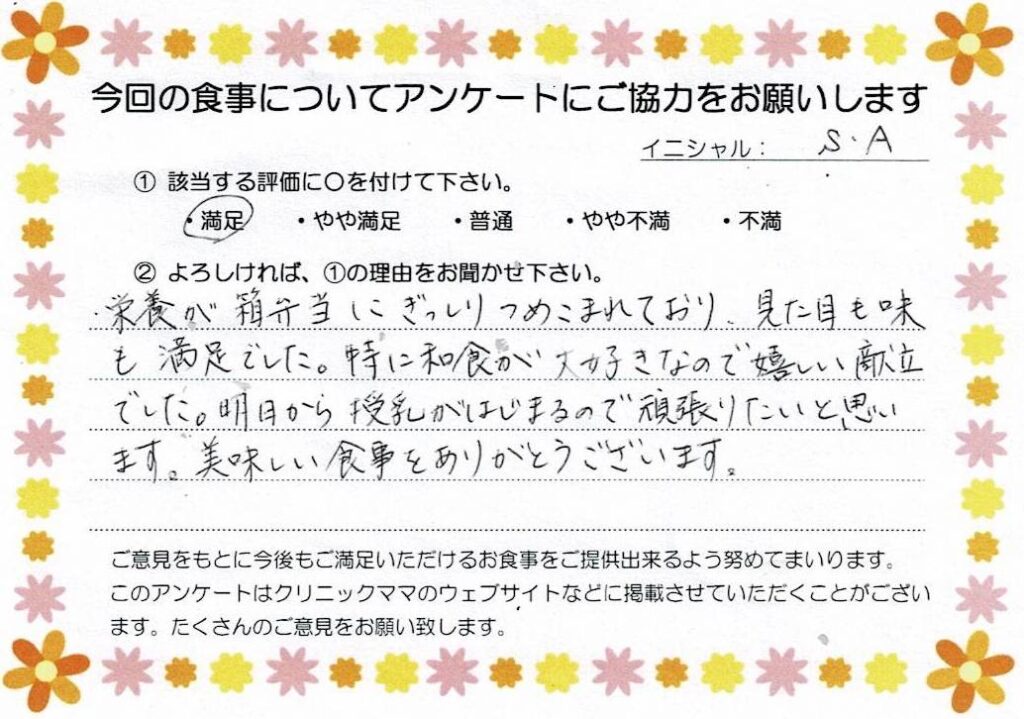 今回の食事についてアンケートにご協力をお願いします
イニシャル： S.A
① 該当する評価に〇を付けて下さい。
・満足 ・やや満足 ・普通 ・やや不満 ・不満
② よろしければ、①の理由をお聞かせ下さい。
栄養が箱弁当にぎっしりつめこまれており、見た目も味
も満足でした。特に和食が大好きなので嬉しい献立
でした。明日から授乳がはじまるので頑張りたいと思い
ます。美味しい食事をありがとうございます。
ご意見をもとに今後もご満足いただけるお食事をご提供出来るよう努めてまいります。
このアンケートはクリニックママのウェブサイトなどに掲載させていただくことがござい
ます。たくさんのご意見をお願い致します。